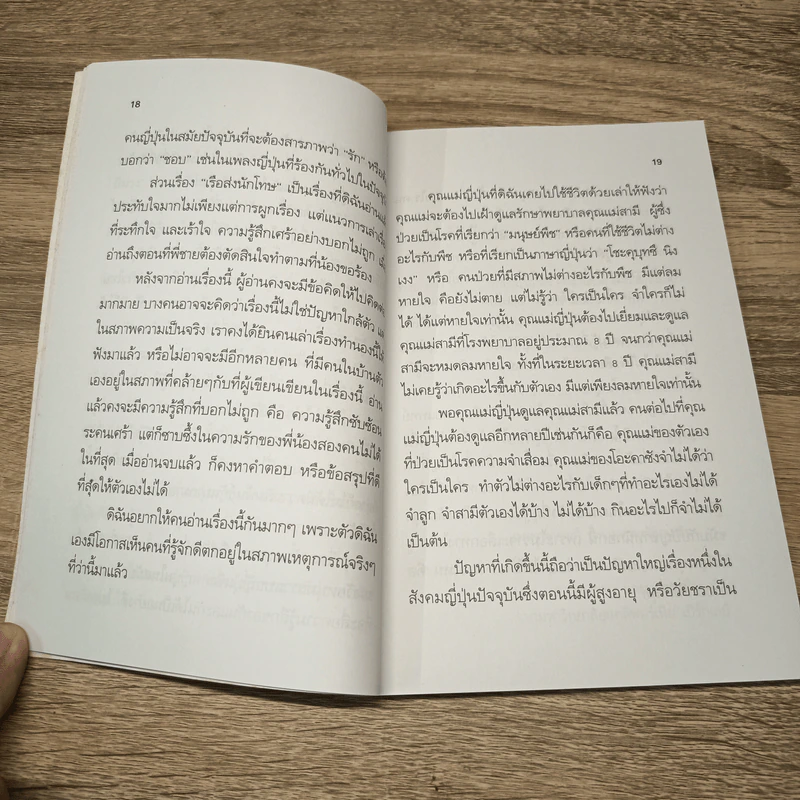 18
คนญี่ปุ่นในสมัยปัจจุบันที่จะต้องสารภาพว่า “รัก” หรือ
บอกว่า “ชอบ” เช่นในเพลงญี่ปุ่นที่ร้องกันทั่วไปในปัจจุ
ส่วนเรื่อง “เรือส่งนักโทษ” เป็นเรื่องที่ดิฉันอ่าน
ประทับใจมากไม่เพียงแต่การผูกเรื่อง แต่แนวการเล่าเรื่
ที่ระทึกใจ และเร้าใจ ความรู้สึกเศร้าอย่างบอกไม่ถูก
อ่านถึงตอนที่พี่ชายต้องตัดสินใจทำตามที่น้องขอร้อง
หลังจากอ่านเรื่องนี้ ผู้อ่านคงจะมีข้อคิดให้ไปคิด
มากมาย บางคนอาจจะคิดว่าเรื่องนี้ไม่ใช่ปัญหาใกล้ตัว
ในสภาพความเป็นจริง เราคงได้ยินคนเล่าเรื่องทำนองนี้ให้
ฟังมาแล้ว หรือไม่อาจจะมีอีกหลายคน ที่มีคนในบ้านตัว
เองอยู่ในสภาพที่คล้ายๆกับที่ผู้เขียนเขียนในเรื่องนี้ อ่าน
แล้วคงจะมีความรู้สึกที่บอกไม่ถูก คือ ความรู้สึกซับซ้อน
ระคนเศร้า แต่ก็ซาบซึ้งในความรักของพี่น้องสองคนไม่ได้
ในที่สุด เมื่ออ่านจบแล้ว ก็คงหาคำตอบ หรือข้อสรุปที่ดี
ที่สุดให้ตัวเองไม่ได้
ดิฉันอยากให้คนอ่านเรื่องนี้กันมากๆ เพราะตัวดิฉัน
เองมีโอกาสเห็นคนที่รู้จักดีตกอยู่ในสภาพเหตุการณ์จริงๆ
ที่ว่านี้มาแล้ว
19
คุณแม่ญี่ปุ่นที่ดิฉันเคยไปใช้ชีวิตด้วยเล่าให้ฟังว่า
คุณแม่จะต้องไปเฝ้าดูแลรักษาพยาบาลคุณแม่สามี ผู้ซึ่ง
ป่วยเป็นโรคที่เรียกว่า “มนุษย์พืช” หรือคนที่ใช้ชีวิตไม่ต่าง
อะไรกับพืช หรือที่เรียกเป็นภาษาญี่ปุ่นว่า “โชะคุบุทซึ นิง
เงง” หรือ คนป่วยที่มีสภาพไม่ต่างอะไรกับพืช มีแต่ลม
หายใจ คือยังไม่ตาย แต่ไม่รู้ว่า ใครเป็นใคร จำใครก็ไม่
ได้ ได้แต่หายใจเท่านั้น คุณแม่ญี่ปุ่นต้องไปเยี่ยมและดูแล
คุณแม่สามีที่โรงพยาบาลอยู่ประมาณ 8 ปี จนกว่าคุณแม่
สามีจะหมดลมหายใจ ทั้งที่ในระยะเวลา 8 ปี คุณแม่สามี
ไม่เคยรู้ว่าเกิดอะไรขึ้นกับตัวเอง มีแต่เพียงลมหายใจเท่านั้น
พอคุณแม่ญี่ปุ่นดูแลคุณแม่สามีแล้ว คนต่อไปที่คุณ
แม่ญี่ปุ่นต้องดูแลอีกหลายปีเช่นกันก็คือ คุณแม่ของตัวเอง
ที่ป่วยเป็นโรคความจำเสื่อม คุณแม่ของโอะคาซังจำไม่ได้ว่า
ใครเป็นใคร ทำตัวไม่ต่างอะไรกับเด็กๆที่ทำอะไรเองไม่ได้
จำลูก จำสามีตัวเองได้บ้าง ไม่ได้บ้าง กินอะไรไปก็จำไม่ได้
เป็นต้น
ปัญหาที่เกิดขึ้นนี้ถือว่าเป็นปัญหาใหญ่เรื่องหนึ่งใน
สังคมญี่ปุ่นปัจจุบันซึ่งตอนนี้มีผู้สูงอายุ หรือวัยชราเป็น